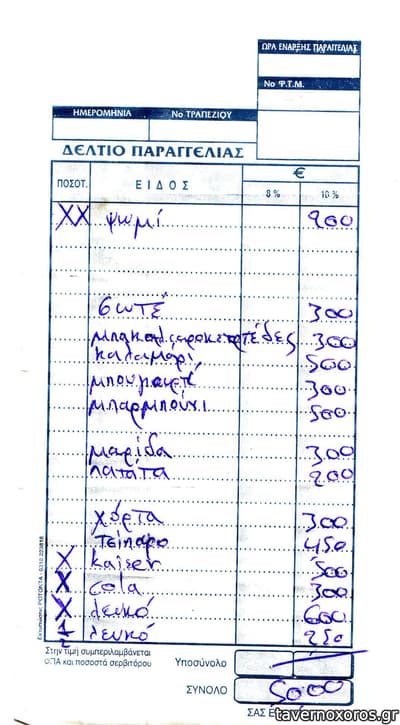 ΩΡΑ ΕΝΑΡΞΗΣ ΠΑΡΑΓΓΕΛΙΑΣ
Νο Φ.Τ.Μ.
ΗΜΕΡΟΜΗΝΙΑ Νο ΤΡΑΠΕΖΙΟΥ
ΔΕΛΤΙΟ ΠΑΡΑΓΓΕΛΙΑΣ
ΠΟΣΟΤ. ΕΙΔΟΣ €
8% 18%
XX ψωμί 200
σωτέ 300
300
καλαμάρι 500
μπουγιουρτέ 300
μπαρμπούνι 500
μαρίδα 300
πατάτα 200
χόρτα 300
τσίπαρο 450
X kaiser 500
X cola 300
X λευκό 600
1/2 λευκό 250
Στην τιμή συμπεριλαμβάνεται
ΦΠΑ και ποσοστά σερβιτόρου
Υποσύνολο
ΣΥΝΟΛΟ 5000
ΣΑΣ Ε
tavernoxoros.gr